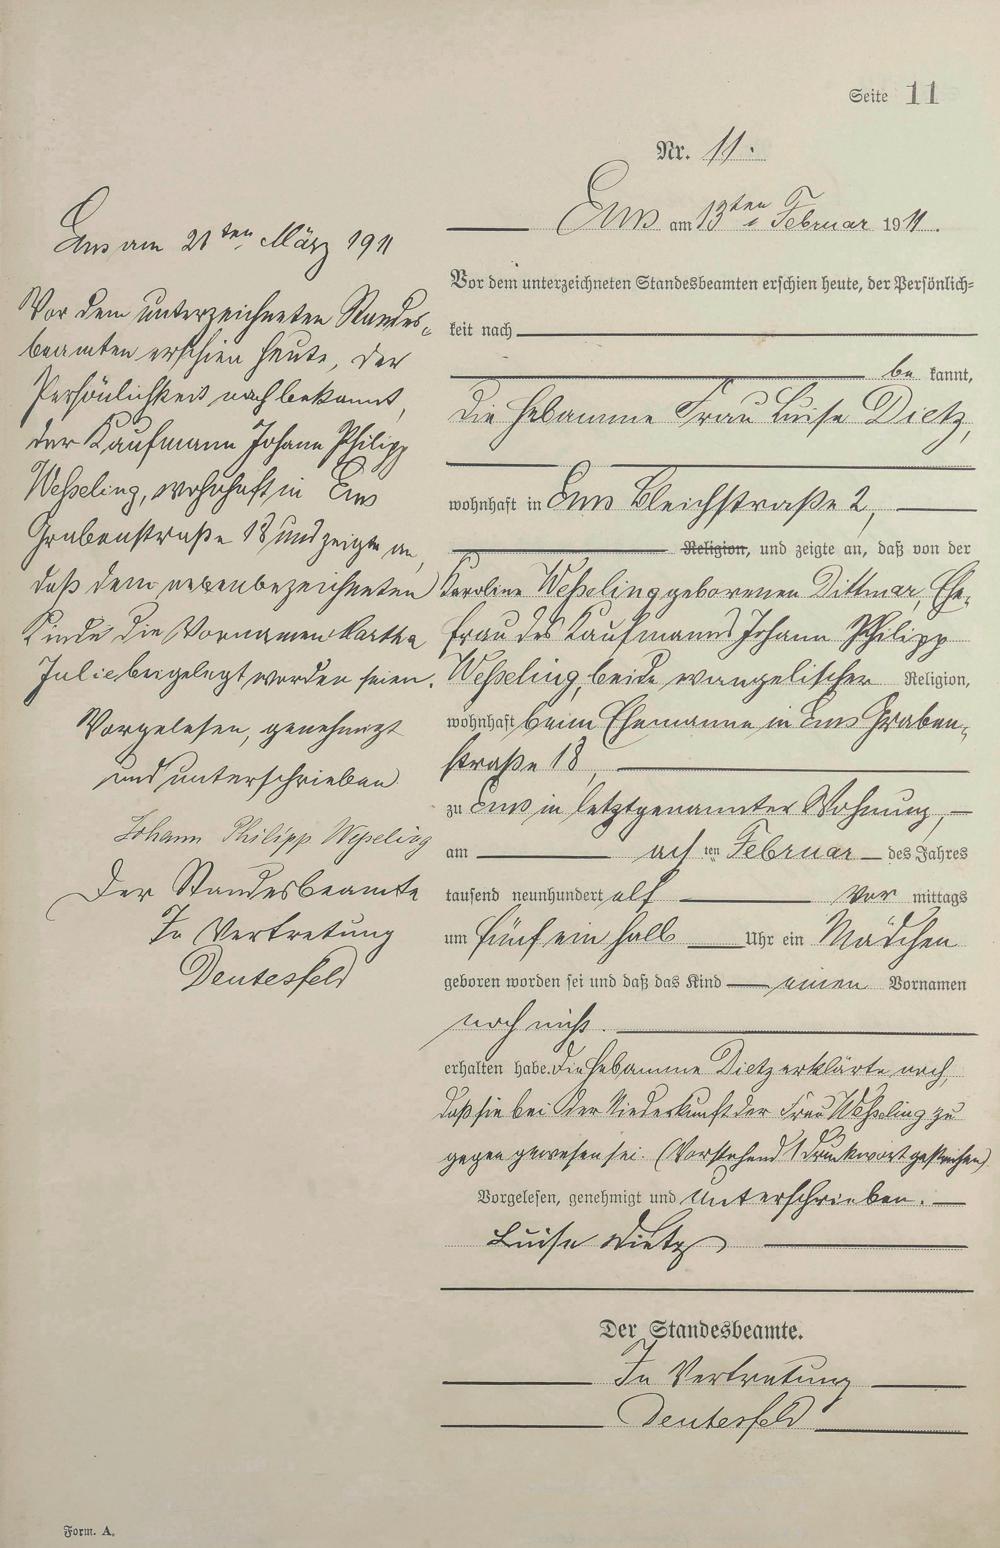 Seite 11
Nr. 11.
Ems am 13ten Februar 1911.
Vor dem unterzeichneten Standesbeamten erschien heute, der Persönlich=
keit nach
be kannt,
die Hebamme Frau Luise Dietz,
wohnhaft in Ems Bleichstraße 2,
Religion, und zeigte an, daß von der
Karoline Weßeling geborenen Dittmar, Ehe-
frau des Kaufmanns Johann Philipp
Weßeling, beide evangelischer Religion,
wohnhaft beim Ehemanne in Ems Graben-
straße 18,
zu Ems in letztgenannter Wohnung,
am acht ten Februar des Jahres
tausend neunhundert elf Vor mittags
um fünf ein halb Uhr ein Mädchen
geboren worden sei und daß das Kind einen Vornamen
noch nicht.
erhalten habe. Die Hebamme Dietz erklärte noch,
daß sie bei der Niederkunft der Frau Weßeling zu
gegen gewesen sei. (Vorstehend 1 Druckwort gestrichen)
Vorgelesen, genehmigt und unterschrieben.
Luise Dietz
Der Standesbeamte.
In Vertretung
Deutesfeld
Ems am 21ten März 1911
Vor dem unterzeichneten Standes-
beamten erschien heute, der
Persönlichkeit nach bekannt,
der Kaufmann Johann Philipp
Weßeling, wohnhaft in Ems
Grabenstraße 18 und zeigte an,
daß dem nebenbezeichneten
Kinde die Vornamen Martha
Julie beigelegt worden seien.
Vorgelesen, genehmigt
und unterschrieben
Johann Philipp Weßeling
Der Standesbeamte
In Vertretung
Deutesfeld
Form. A.